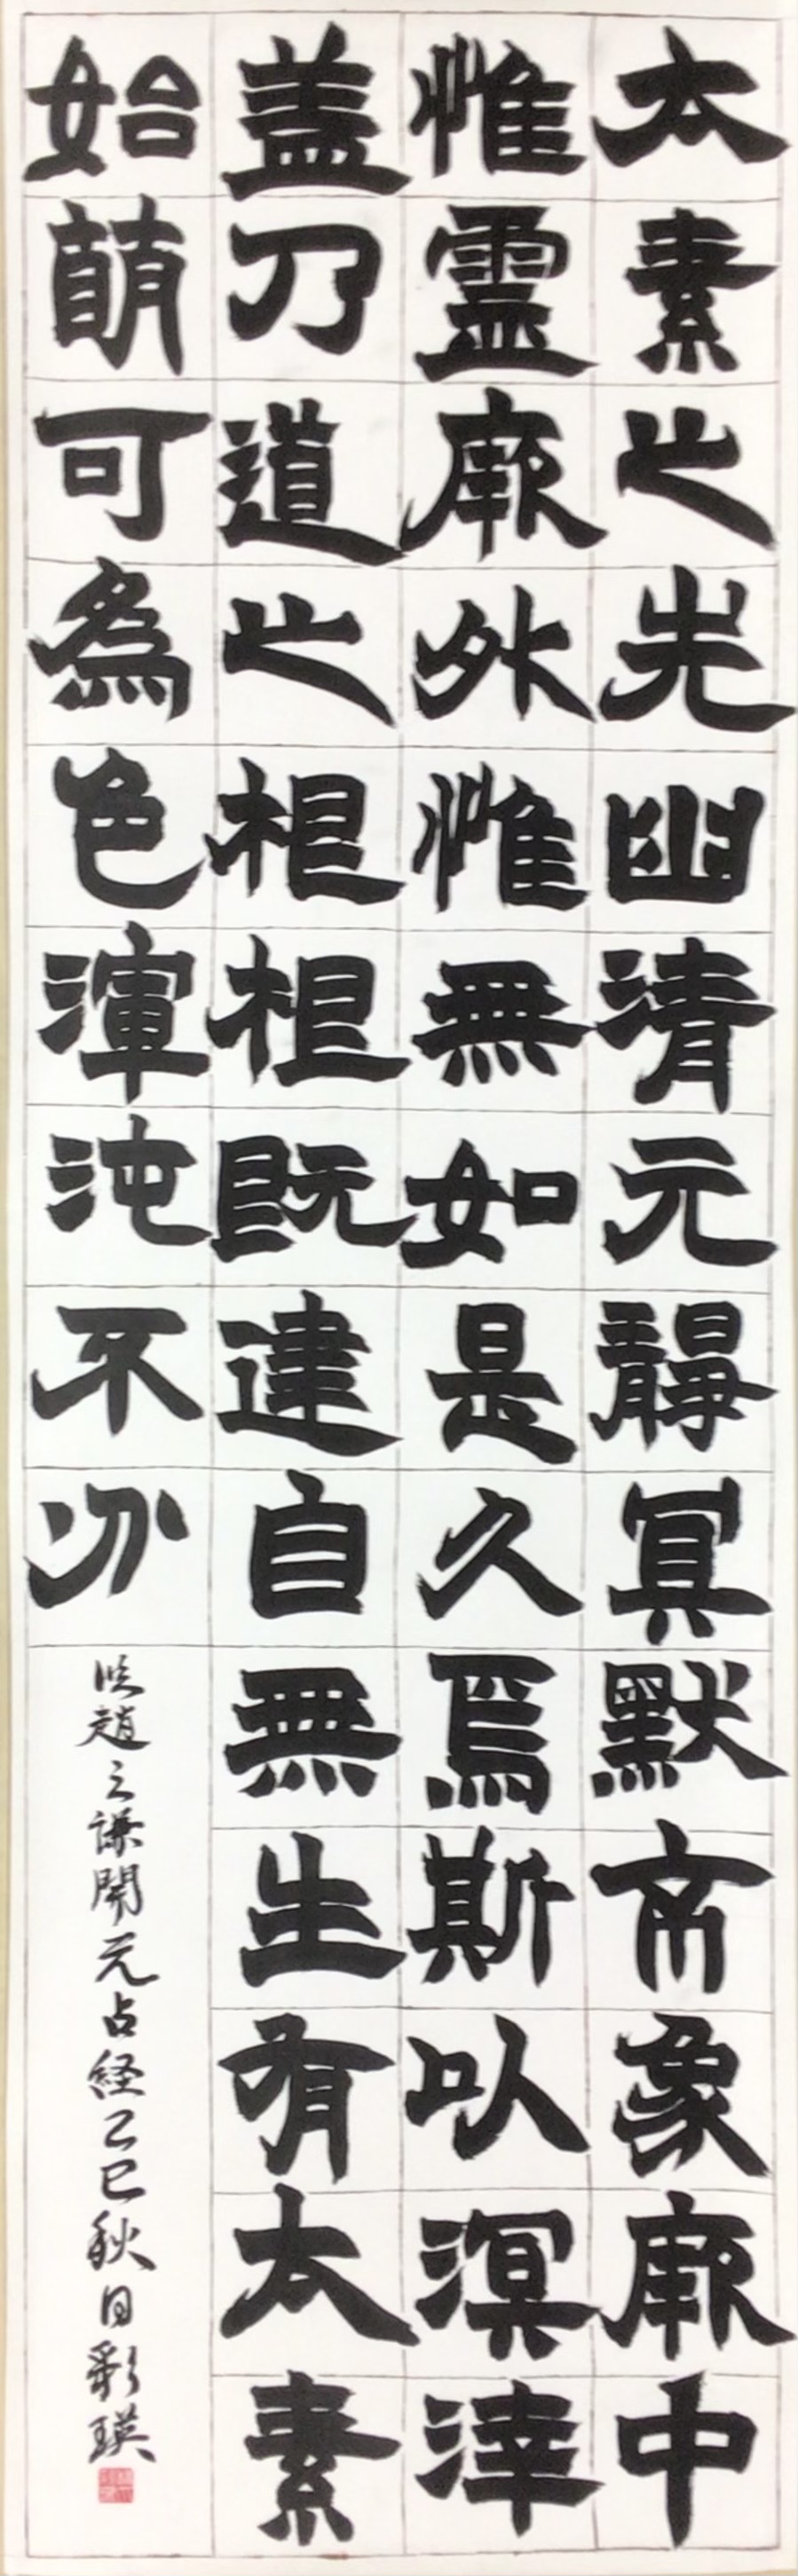 太素之先幽清元靜冥默玄象厥中
惟靈厥外惟無如是久焉斯以溟涬
蓋乃道之根根既建自無生有太素
始萌可為色渾沌不分
臨趙之謙開元占経乙巳秋日彩瑛